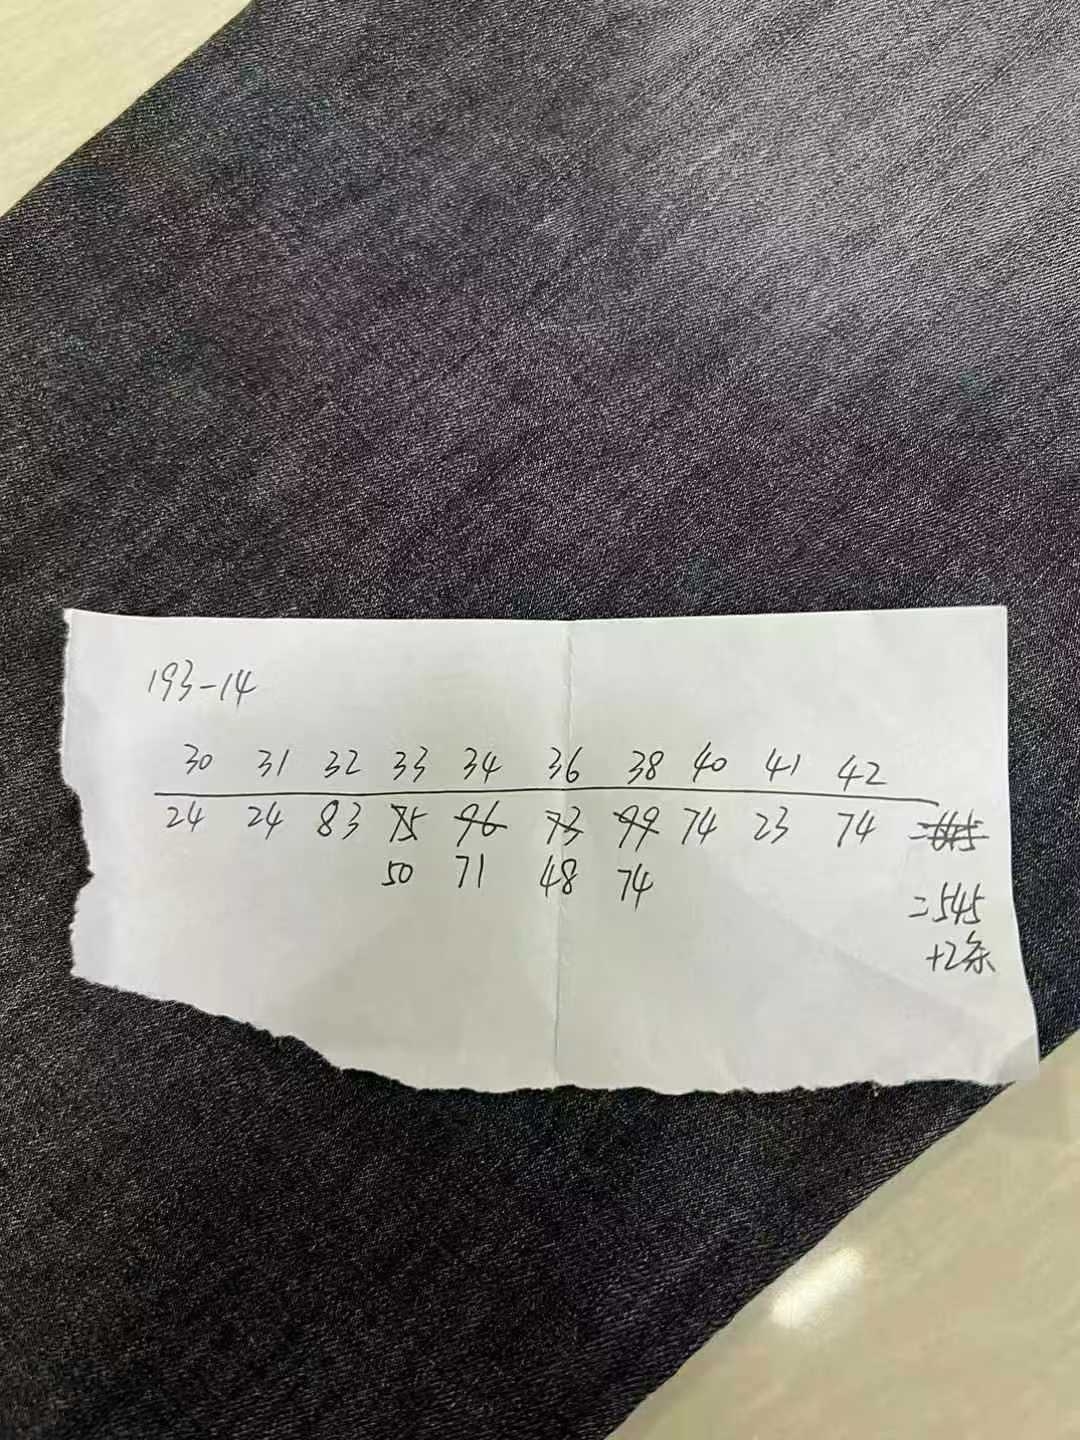 193-14
30 31 32 33 34 36 38 40 41 42
24 24 83 75 96 73 99 74 23 74 =645
50 71 48 74
=545
+2条